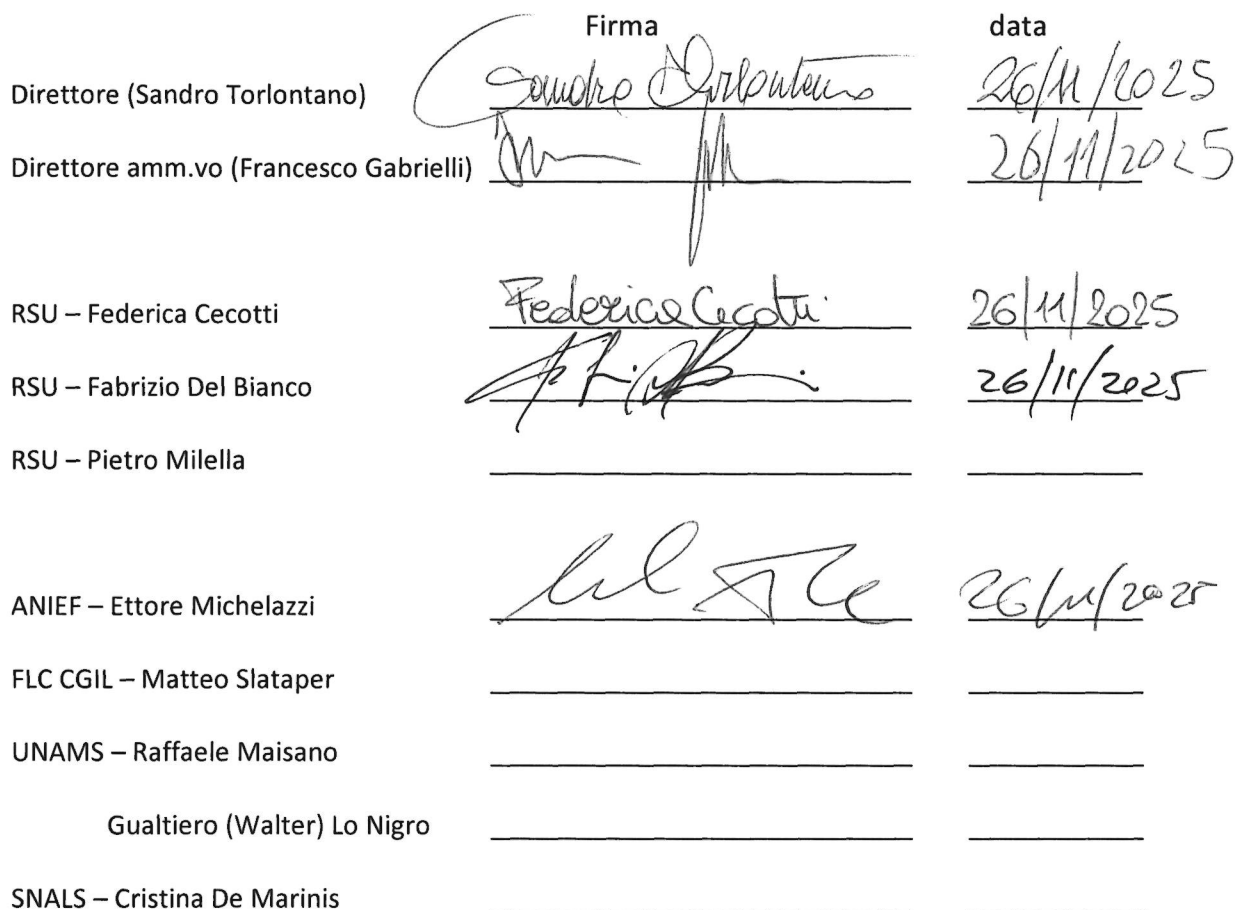 Firma data
Direttore (Sandro Torlontano) Sandro Torlontano 26/11/2025
Direttore amm.vo (Francesco Gabrielli) 26/11/2025
RSU – Federica Cecotti Federica Cecotti 26/11/2025
RSU – Fabrizio Del Bianco 26/11/2025
RSU – Pietro Milella
ANIEF – Ettore Michelazzi 26/11/2025
FLC CGIL – Matteo Slataper
UNAMS – Raffaele Maisano
Gualtiero (Walter) Lo Nigro
SNALS – Cristina De Marinis